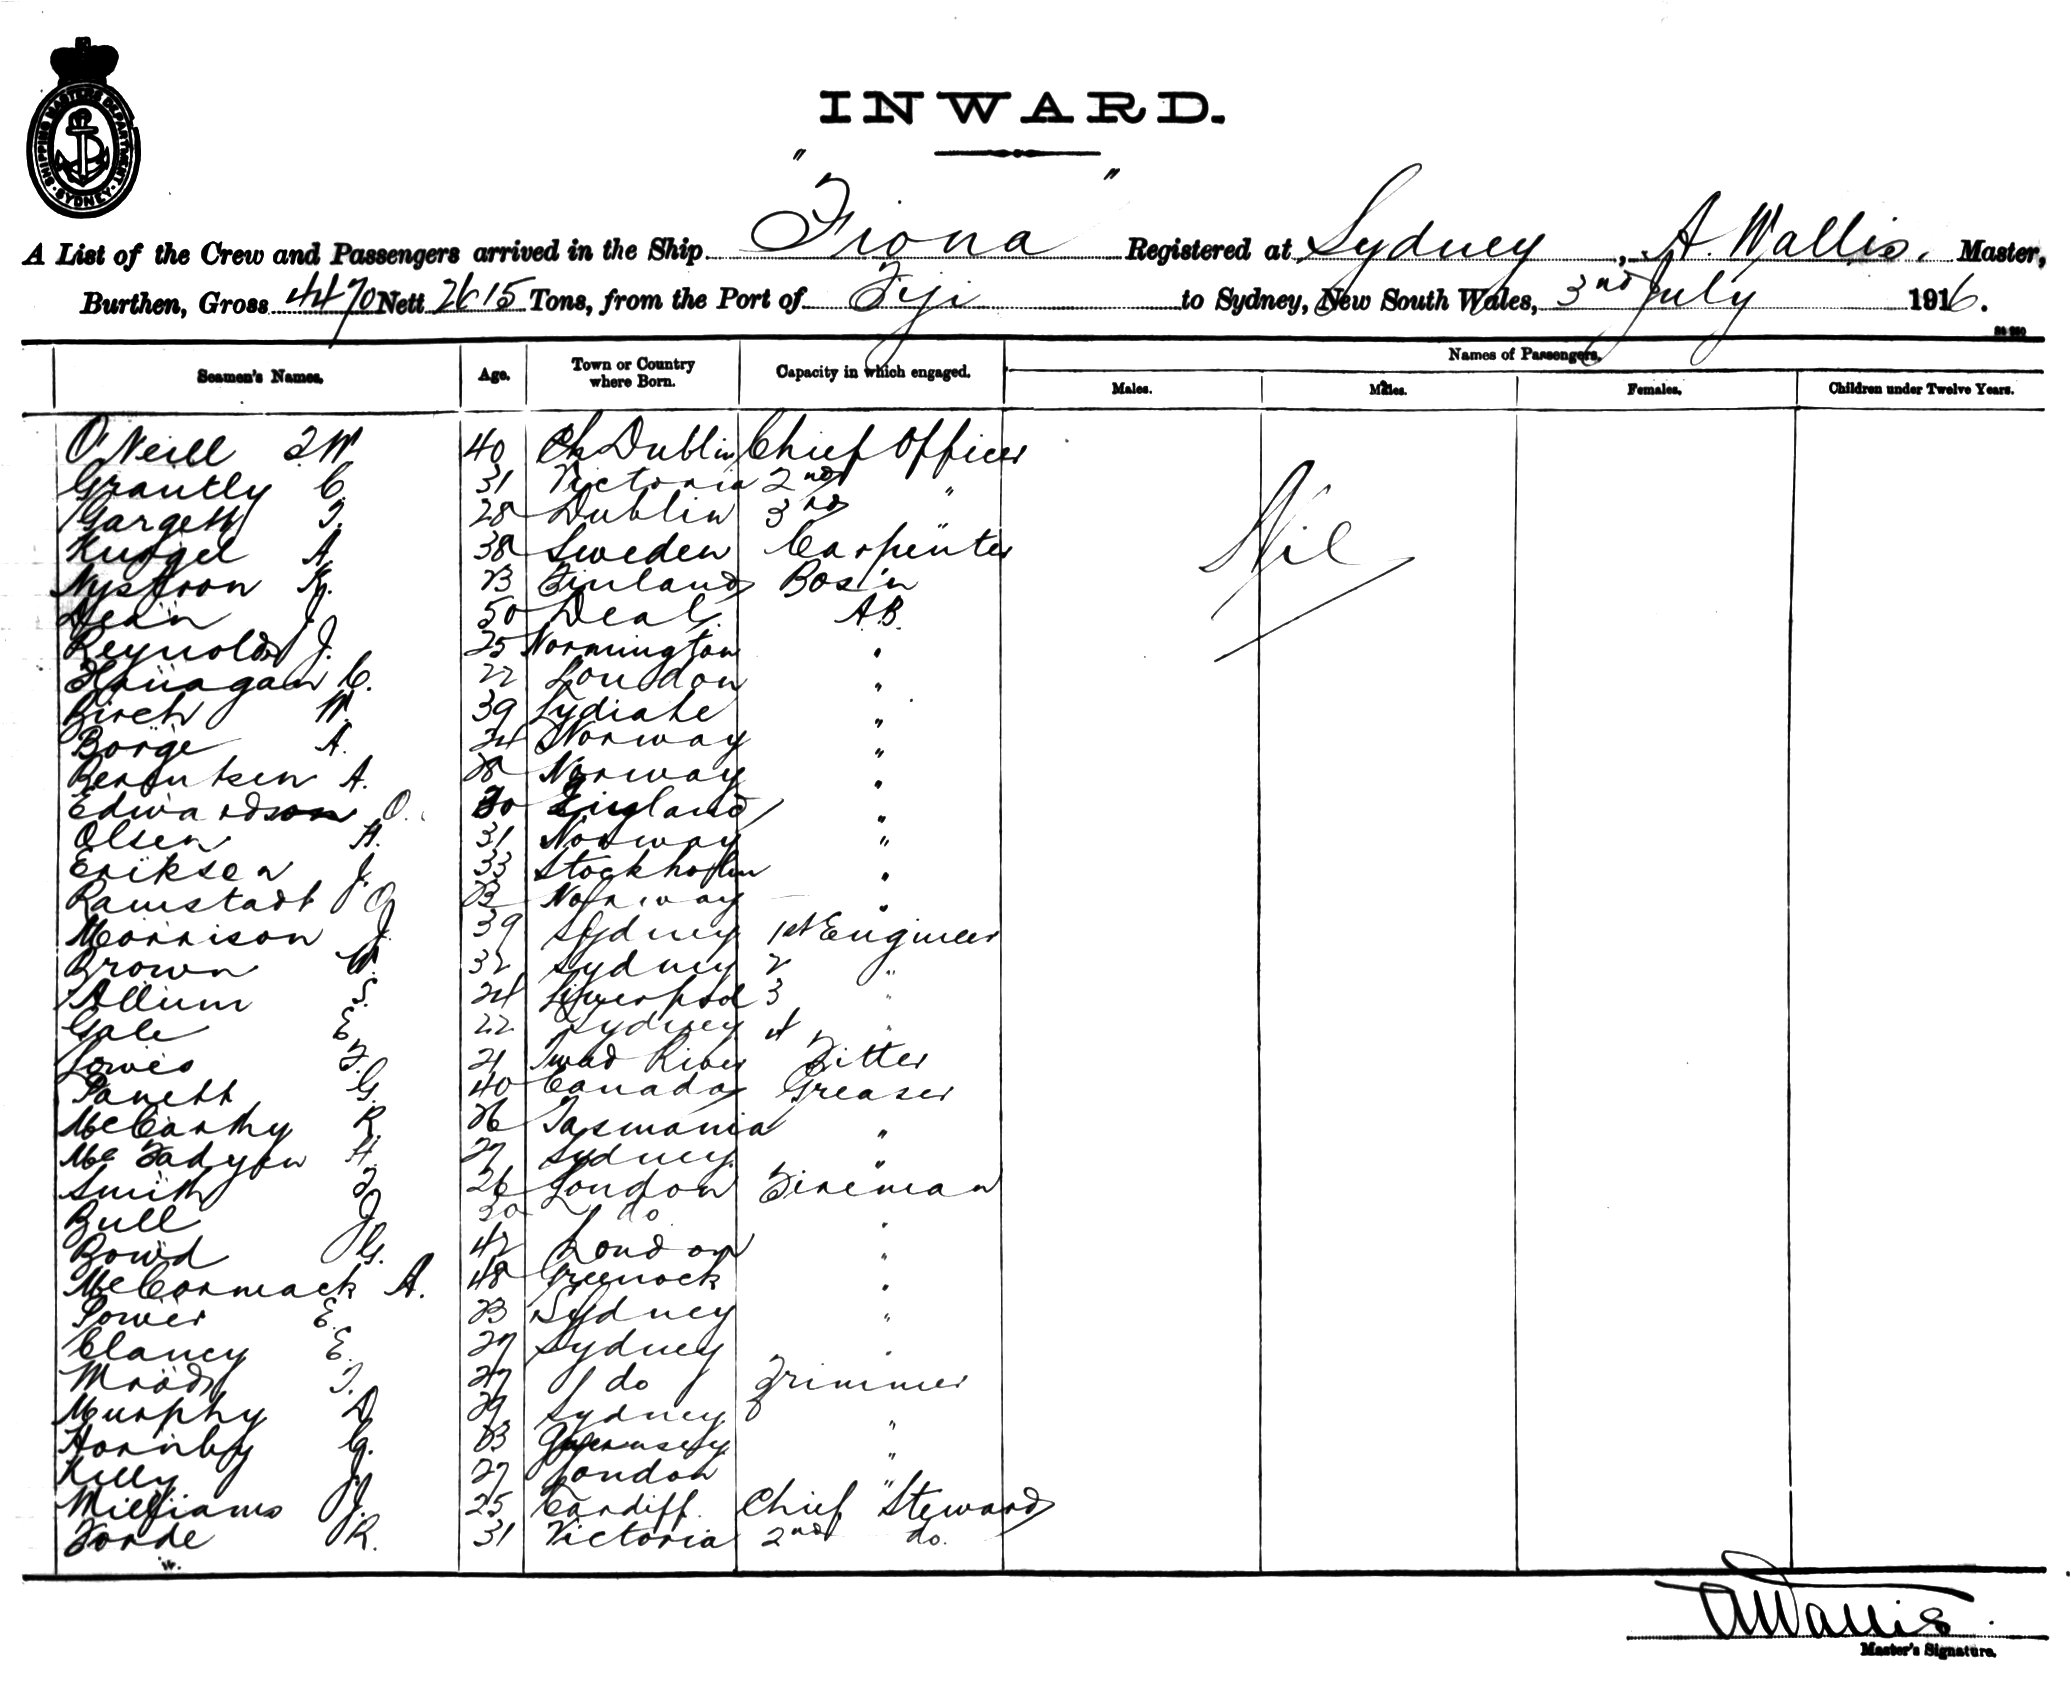 SHIPPING MASTERS DEPARTMENT
SYDNEY
INWARD.
A List of the Crew and Passengers arrived in the Ship "Fiona" Registered at Sydney, A. Wallis. Master,
Burthen, Gross 4470 Nett 2615 Tons, from the Port of Fiji to Sydney, New South Wales, 3rd July 1916.
Seamen's Names. Age. Town or Country where Born. Capacity in which engaged. Names of Passengers.
Males. Males. Females. Children under Twelve Years.
O'Neill 40 Dublin Chief Officer
Grantly C. 31 Victoria 2nd "
Gargett 28 Dublin 3rd "
A. 38 Sweden Carpenter
Nystron K. 23 Finland Bos'n
Dean J 50 Deal A.B.
Reynolds J. 25 Normington "
Hanagan C. 22 London "
Birch W. 39 Lydiate "
Borge A. 24 Norway "
Berntsen A. 28 Norway "
Edwardson O. 30 "
Olsen H. 31 Norway "
Eriksen J. 33 Stockholm "
Ramstadt O 23 Norway "
Morrison J. 39 Sydney 1st Engineer
Brown W. 32 Sydney 2 "
Allum S. 24 Liverpool 3 "
Gale E 22 Sydney 4 "
Lowes F. 21 Tweed River Fitter
G. 40 Canada Greaser
McCarthy R. 26 Tasmania "
McFadyen H. 27 Sydney "
Smith F 26 London Fireman
Bull J 30 do "
Bowd G. 42 London "
McCormack A. 48 Greenock "
Power E. 23 Sydney "
Clancy E. 27 Sydney "
27 do Trimmer
Murphy D 29 Sydney "
Hornby G. 23 Guernsey "
Kelly J. 27 London "
Williams J. 25 Cardiff Chief Steward
Forde R. 31 Victoria 2nd do.
Nil
A Wallis
Master's Signature.